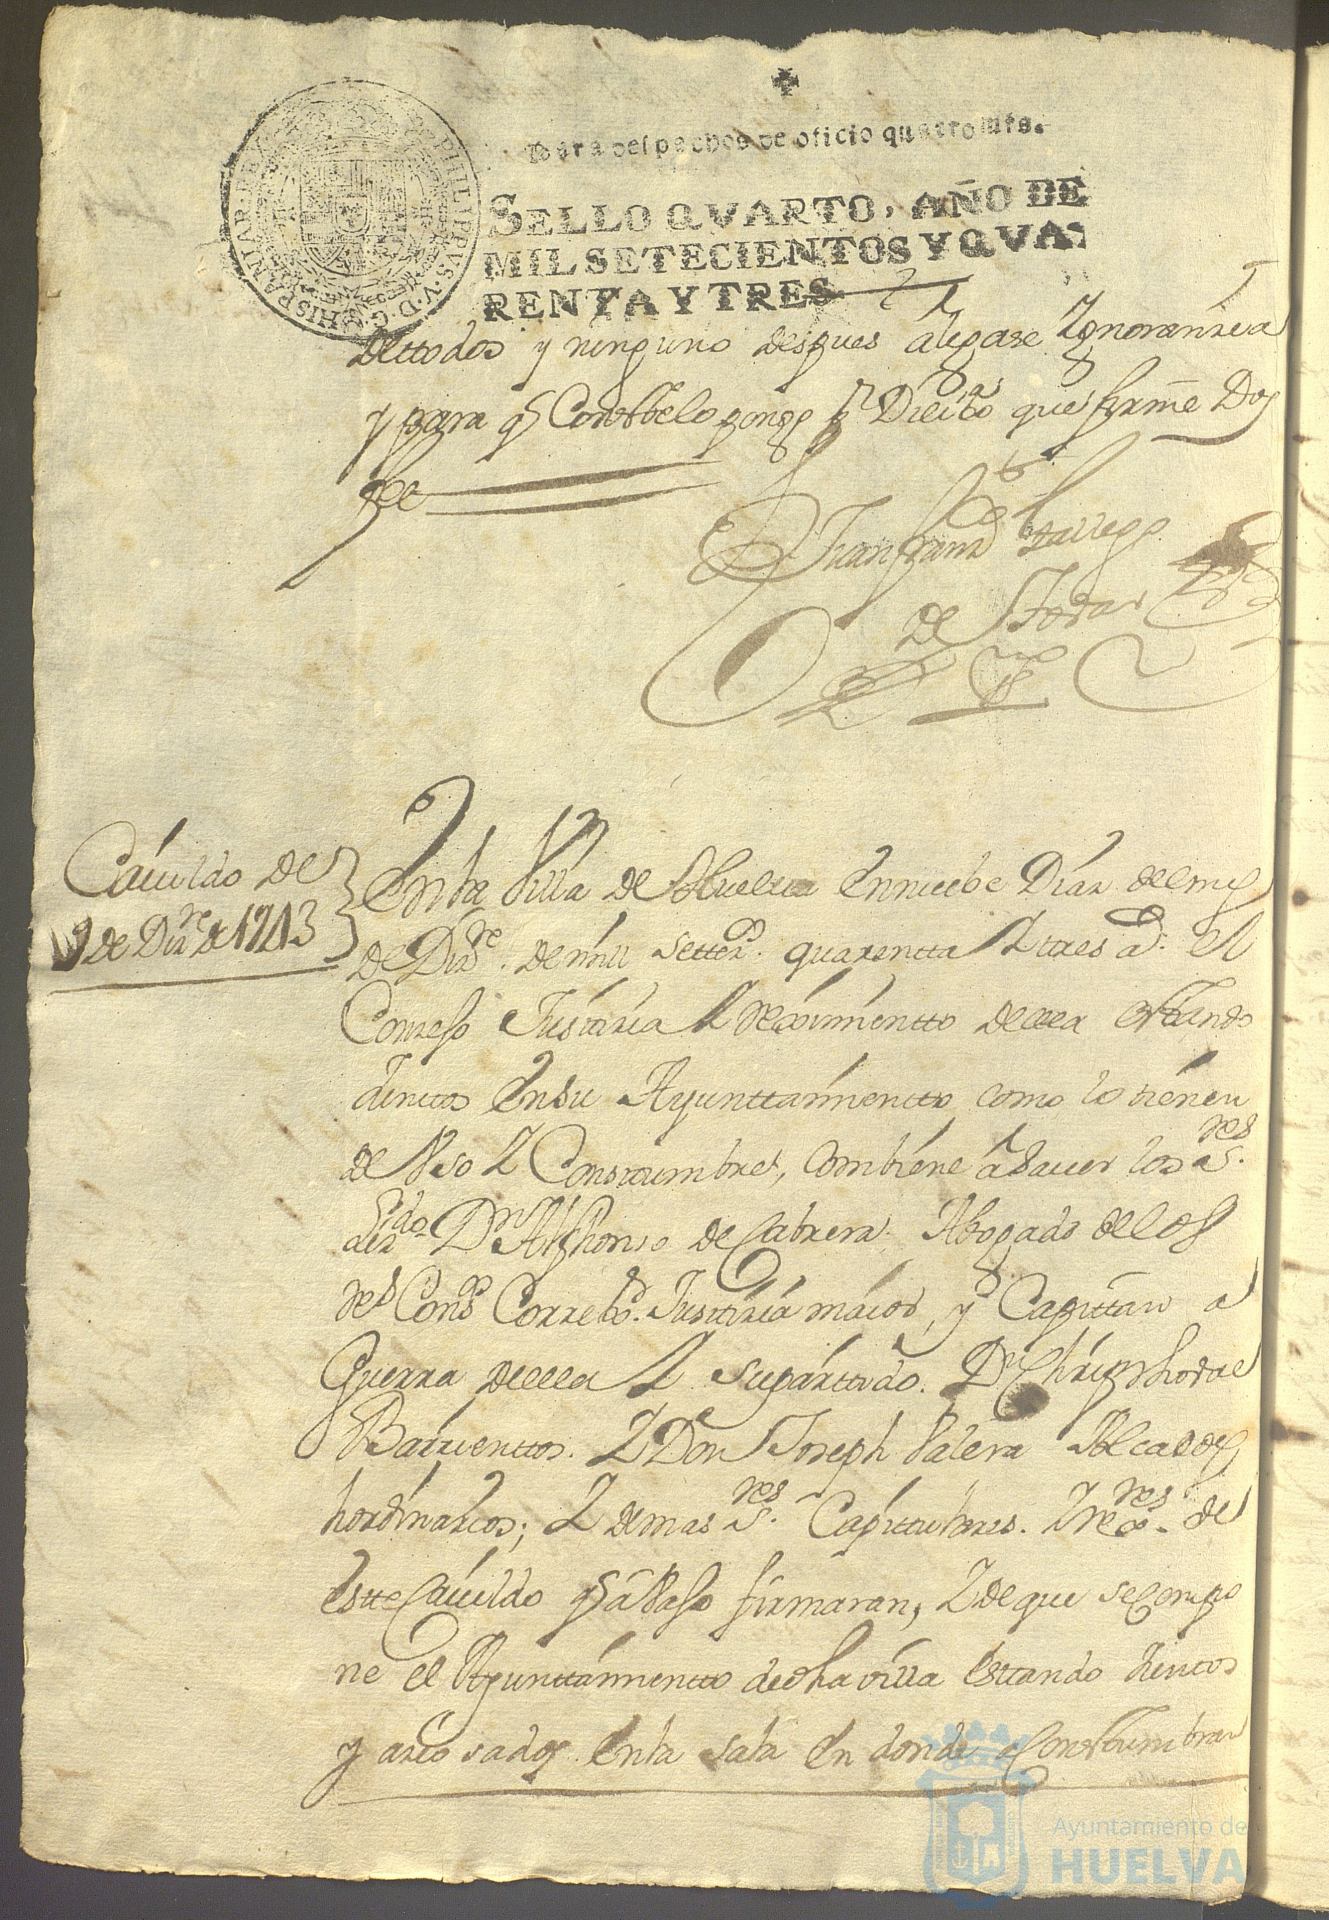 Para despachos de oficio quatro mrs.
SELLO QVARTO, AÑO DE
MIL SETECIENTOS Y QVA-
RENTA Y TRES
PHILIPPVS. V. D. G. HISPANIAR. REX
dettodos y ninguno despues alegase Ygnoranzia
y para q̃ Constte lo pongo pr Dilixa que firmé Doy
fee
Juan franco Gallego
de
Cauildo de
9 de Dizre de 1743
En la Villa de Huelva En nuebe Dias del mes
de Dizre. de mill settezs. quarentta Y tres as. el
Consejo Justizia Y reximientto de ella esttando
Junttos En su Ayunttamientto como lo tienen
de Vso Y Consttumbre, Combiene a Sauer los Sres.
Lizdo. Dn Alphonso de Cabrera. Abogado de los
Rs Consos Corregor. Justizia maior, y Capittan a
Guerra de ella Y su parttido. Dn Christhoual
Barrienttos. Y Don Joseph Valera Alcaldes
hordinarios; Y demas Sres. Capitulares. Y de
este Cauildo q̃ a Vajo firmaran, Y de que se Compo
ne el Ayunttamientto de dha villa esttando Junttos
y en la sala en donde Consttumbran
Ayuntamiento de
HUELVA